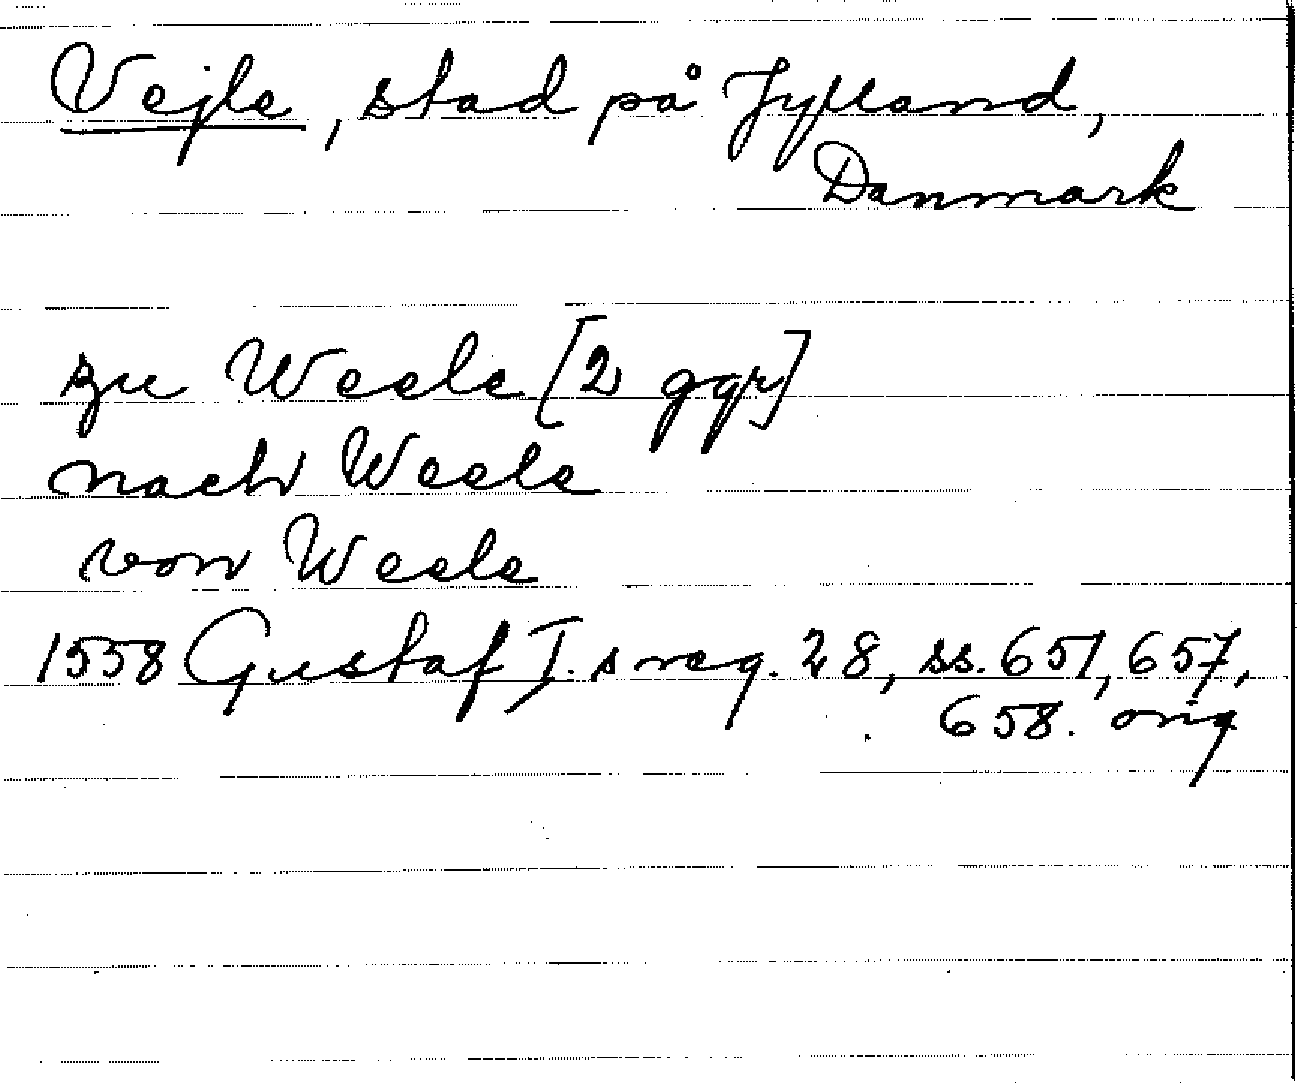 Vejle, stad på Jylland,
Danmark
zu Weele [2 ggr]
nach Weele
von Weele
1558 Gustaf I. s reg. 28, ss. 651, 657,
658. orig